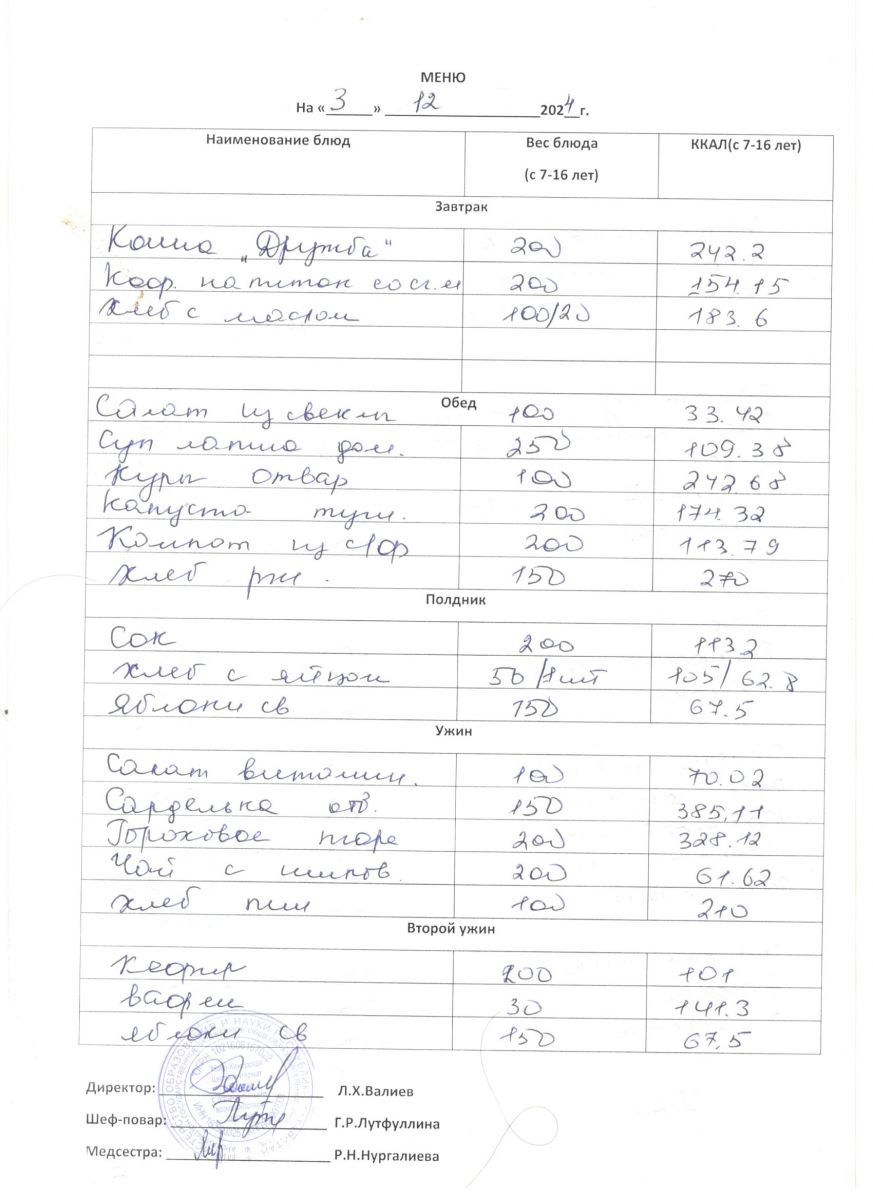 МЕНЮ
На «3» 12 2024 г.
Наименование блюд Вес блюда (с 7-16 лет) ККАЛ(с 7-16 лет)
Завтрак
Каша „Дружба“ 200 242.2
Коф. напиток со сг.м 200 154.15
Хлеб с маслом 100/20 183.6
Обед
Салат из свеклы 100 33.42
Суп лапша дом. 250 109.38
Куры отвар 100 242 68
Капуста туш. 200 174.32
Компот из с/ф 200 113.79
Хлеб рж. 150 270
Полдник
Сок 200 113 2
Хлеб с яйцом 50/1шт 105/62.8
Яблоки св 150 67.5
Ужин
Салат витамин. 100 70.02
Сарделька отв. 150 385,11
Гороховое пюре 200 328.12
Чай с шипов. 200 61.62
Хлеб пш 100 210
Второй ужин
Кефир 200 101
вафли 30 141.3
яблоки св 150 67,5
Директор: Л.Х.Валиев
Шеф-повар: Г.Р.Лутфуллина
Медсестра: Р.Н.Нургалиева